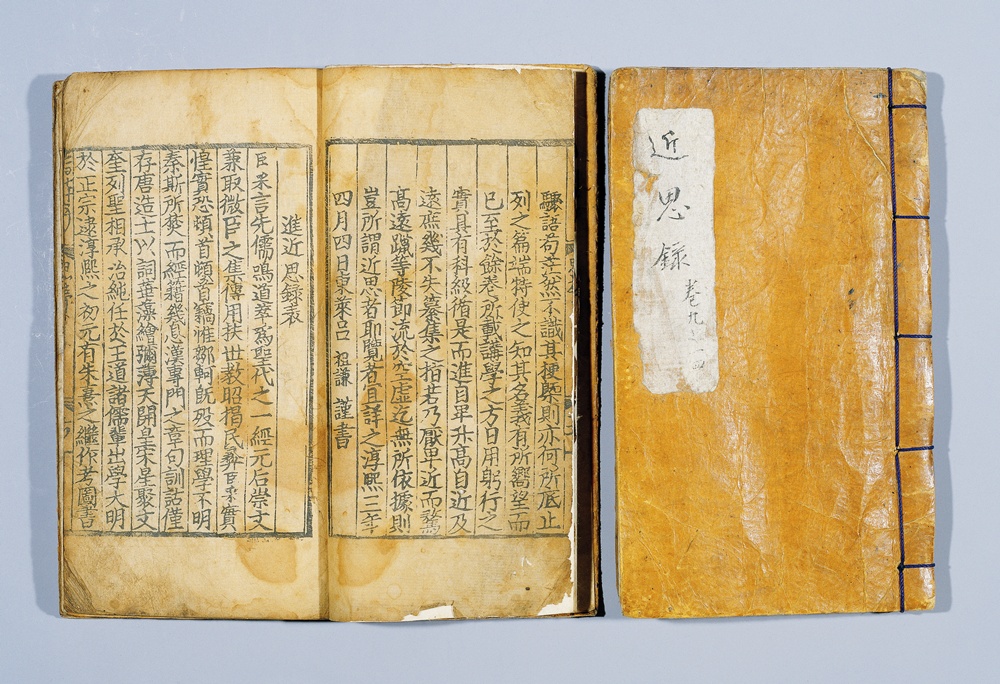 驟語苟茫然不識其梗槩則亦何所底止
列之篇端特使之知其名義有所嚮望而
已至於餘卷所載講學之方日用躬行之
實具有科級循是而進自卑升高自近及
遠庶幾不失纂集之指若乃厭卑近而騖
高遠躐等陵節流於空虛迄無所依據則
豈所謂近思者耶覽者宜詳之淳熙三年
四月四日東萊呂祖謙謹書
進近思錄表
臣采言先儒鳴道萃爲聖代之一經元后崇文
兼取微臣之集傳用扶世教昭揭民彝臣采實
惶實恐頓首頓首竊惟鄒軻旣歿而理學不明
秦斯所焚而經籍幾息漢專門之章句訓詁僅
存唐造士以詞華藻繪彌薄天開皇宋星聚文
奎列聖相承治純任於王道諸儒輩出學大明
於正宗逮淳熙之初元有朱熹之繼作考圖書
近思錄
卷九之十四